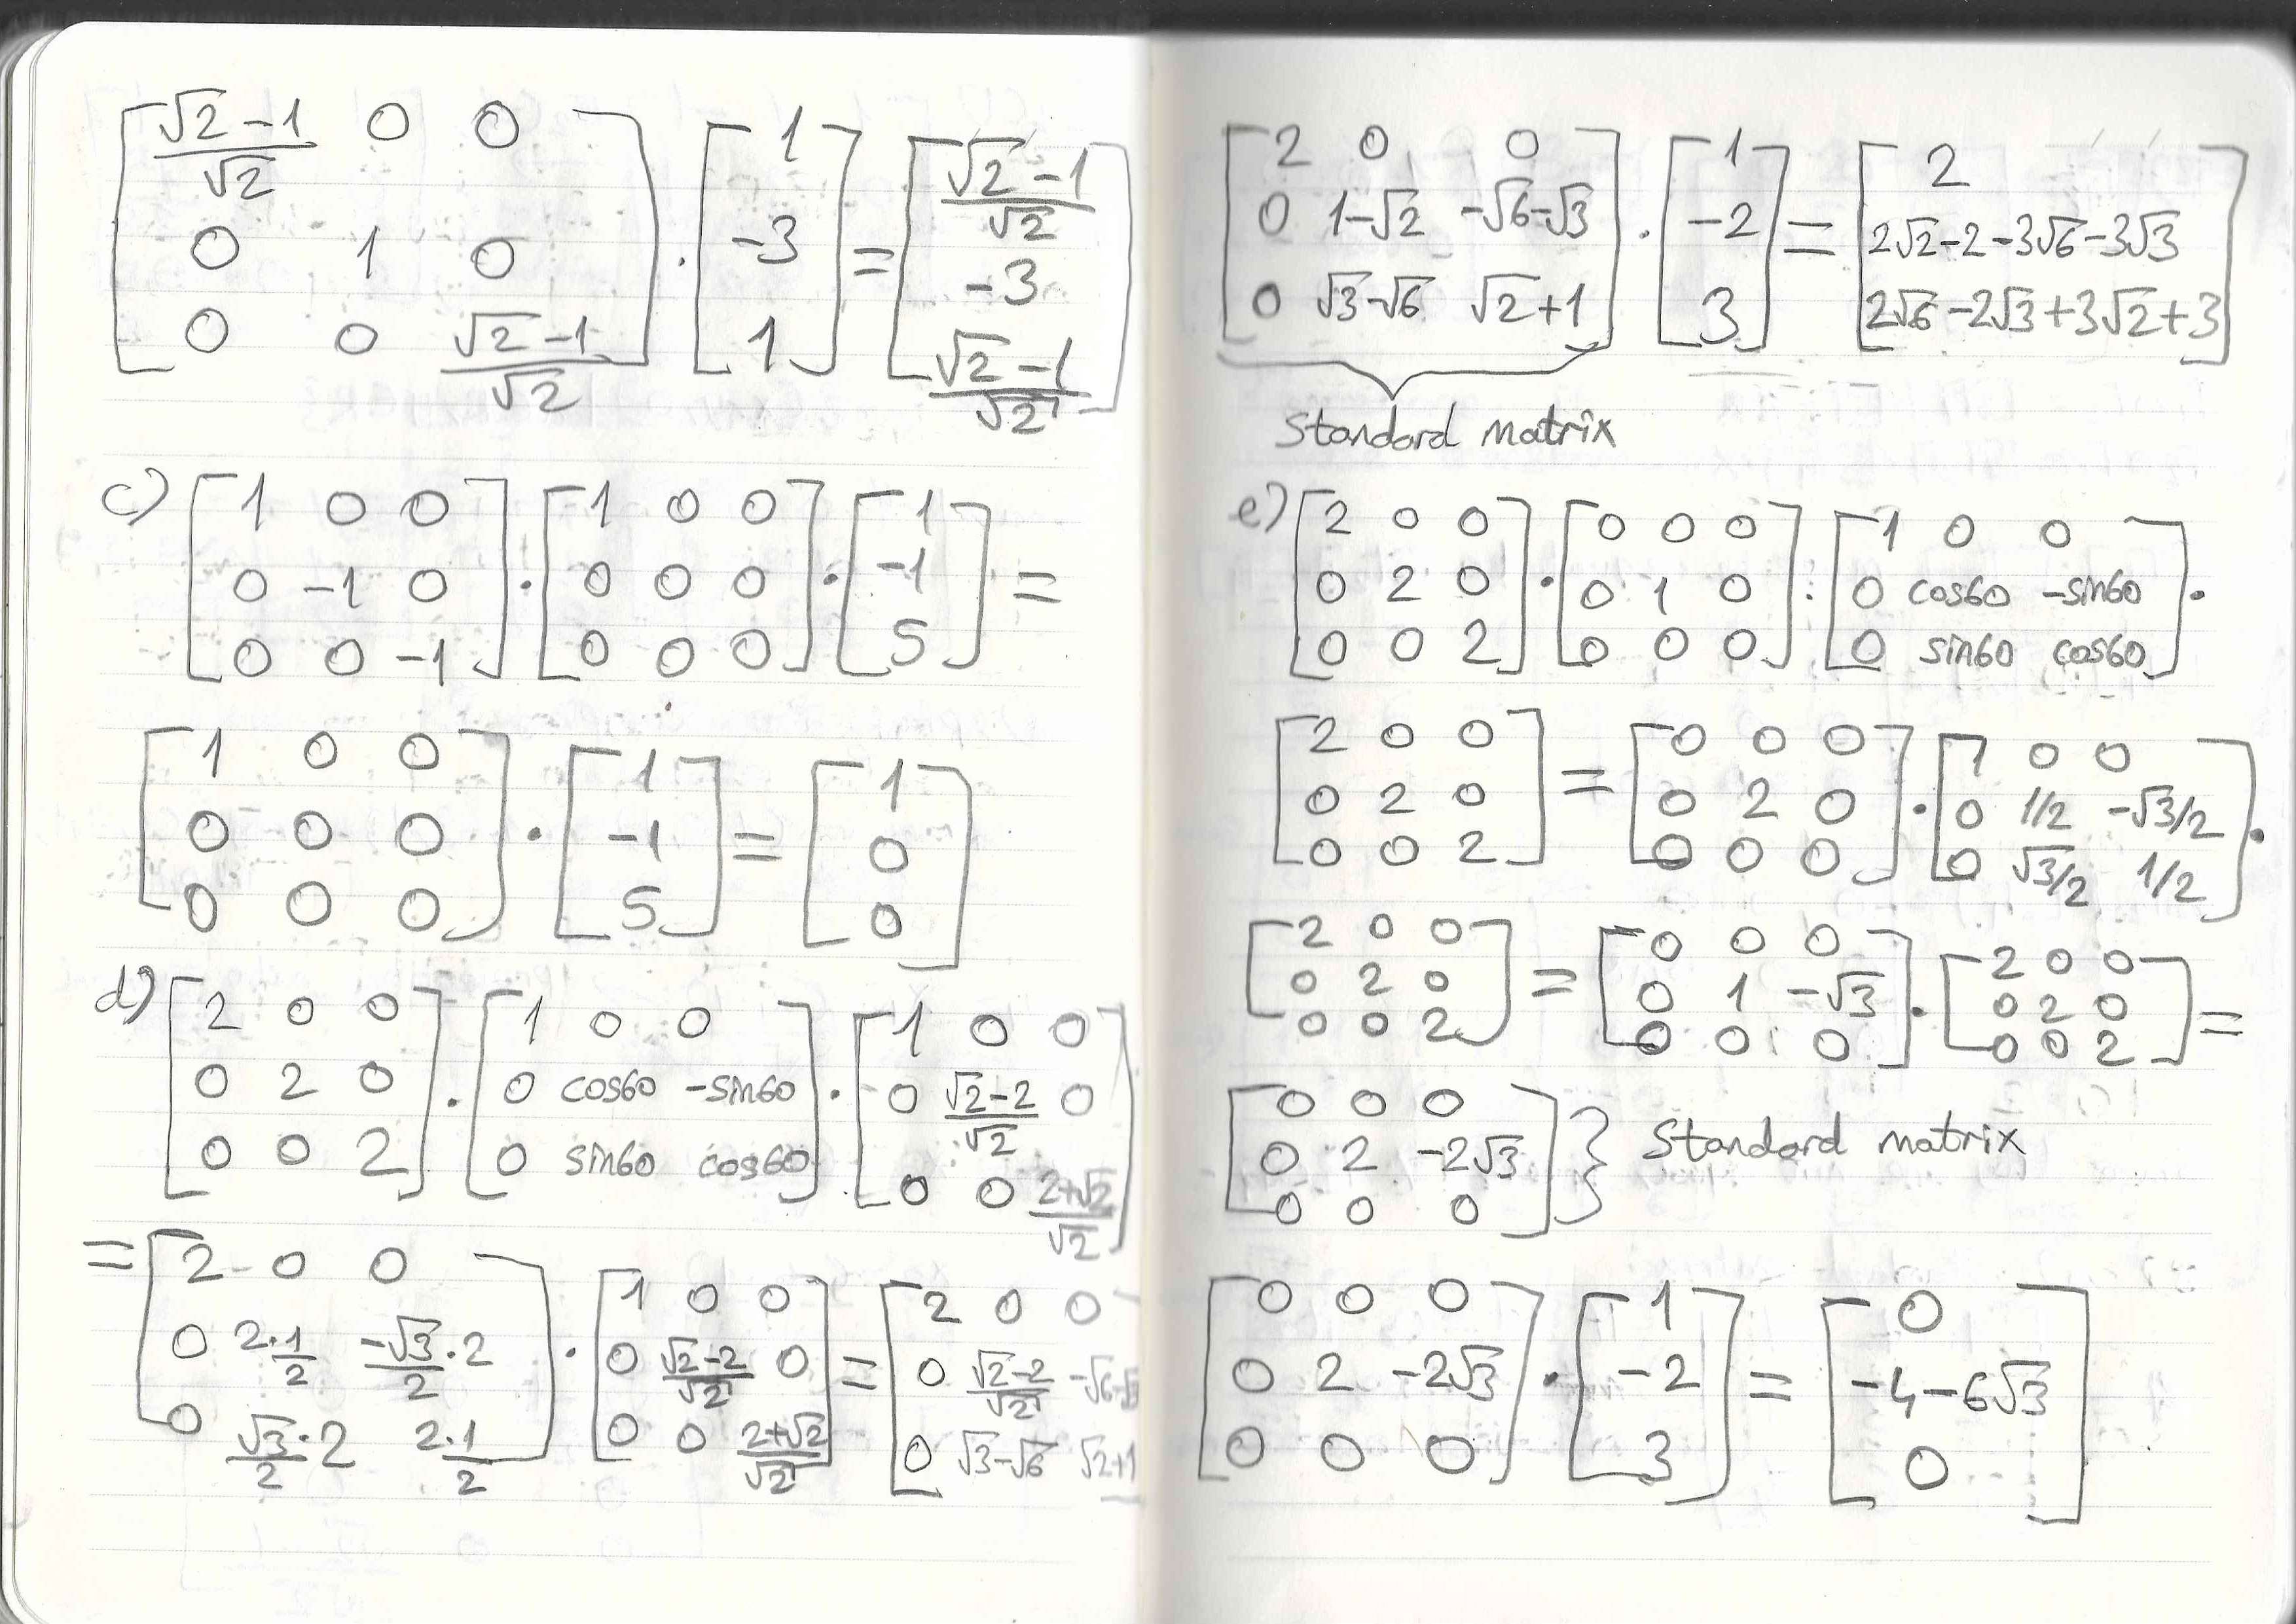 [ (√2-1)/√2 0 0 ; 0 1 0 ; 0 0 (√2-1)/√2 ] · [ 1 ; -3 ; 1 ] = [ (√2-1)/√2 ; -3 ; (√2-1)/√2 ]
c) [ 1 0 0 ; 0 -1 0 ; 0 0 -1 ] · [ 1 0 0 ; 0 0 0 ; 0 0 0 ] · [ 1 ; -1 ; 5 ] =
[ 1 0 0 ; 0 0 0 ; 0 0 0 ] · [ 1 ; -1 ; 5 ] = [ 1 ; 0 ; 0 ]
d) [ 2 0 0 ; 0 2 0 ; 0 0 2 ] · [ 1 0 0 ; 0 cos60 -sin60 ; 0 sin60 cos60 ] · [ 1 0 0 ; 0 (√2-2)/√2 0 ; 0 0 (2+√2)/√2 ]
= [ 2 0 0 ; 0 2·1/2 -√3/2·2 ; 0 √3/2·2 2·1/2 ] · [ 1 0 0 ; 0 (√2-2)/√2 0 ; 0 0 (2+√2)/√2 ] = [ 2 0 0 ; 0 (√2-2)/√2 -√6-√3 ; 0 √3-√6 √2+1 ]
[ 2 0 0 ; 0 1-√2 -√6-√3 ; 0 √3-√6 √2+1 ] · [ 1 ; -2 ; 3 ] = [ 2 ; 2√2-2-3√6-3√3 ; 2√6-2√3+3√2+3 ]
Standard matrix
e) [ 2 0 0 ; 0 2 0 ; 0 0 2 ] · [ 0 0 0 ; 0 1 0 ; 0 0 0 ] · [ 1 0 0 ; 0 cos60 -sin60 ; 0 sin60 cos60 ] ·
[ 2 0 0 ; 0 2 0 ; 0 0 2 ] = [ 0 0 0 ; 0 2 0 ; 0 0 0 ] · [ 1 0 0 ; 0 1/2 -√3/2 ; 0 √3/2 1/2 ] ·
[ 2 0 0 ; 0 2 0 ; 0 0 2 ] = [ 0 0 0 ; 0 1 -√3 ; 0 0 0 ] · [ 2 0 0 ; 0 2 0 ; 0 0 2 ] =
[ 0 0 0 ; 0 2 -2√3 ; 0 0 0 ] } Standard matrix
[ 0 0 0 ; 0 2 -2√3 ; 0 0 0 ] · [ 1 ; -2 ; 3 ] = [ 0 ; -4-6√3 ; 0 ]